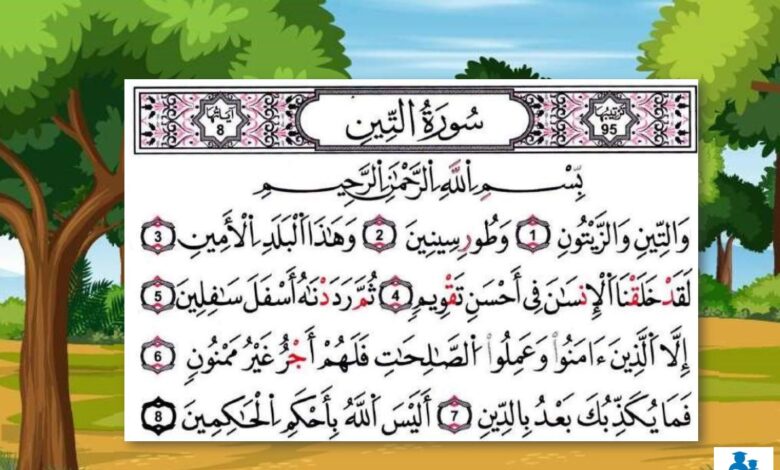 آياتها 8
سُورَةُ التِّينِ
ترتيبها 95
بِسْمِ اللَّهِ الرَّحْمَٰنِ الرَّحِيمِ
وَالتِّينِ وَالزَّيْتُونِ 1 وَطُورِ سِينِينَ 2 وَهَٰذَا الْبَلَدِ الْأَمِينِ 3
لَقَدْ خَلَقْنَا الْإِنسَانَ فِي أَحْسَنِ تَقْوِيمٍ 4 ثُمَّ رَدَدْنَاهُ أَسْفَلَ سَافِلِينَ 5
إِلَّا الَّذِينَ ءَامَنُوا۟ وَعَمِلُوا۟ الصَّالِحَاتِ فَلَهُمْ أَجْرٌ غَيْرُ مَمْنُونٍ 6
فَمَا يُكَذِّبُكَ بَعْدُ بِالدِّينِ 7 أَلَيْسَ اللَّهُ بِأَحْكَمِ الْحَاكِمِينَ 8